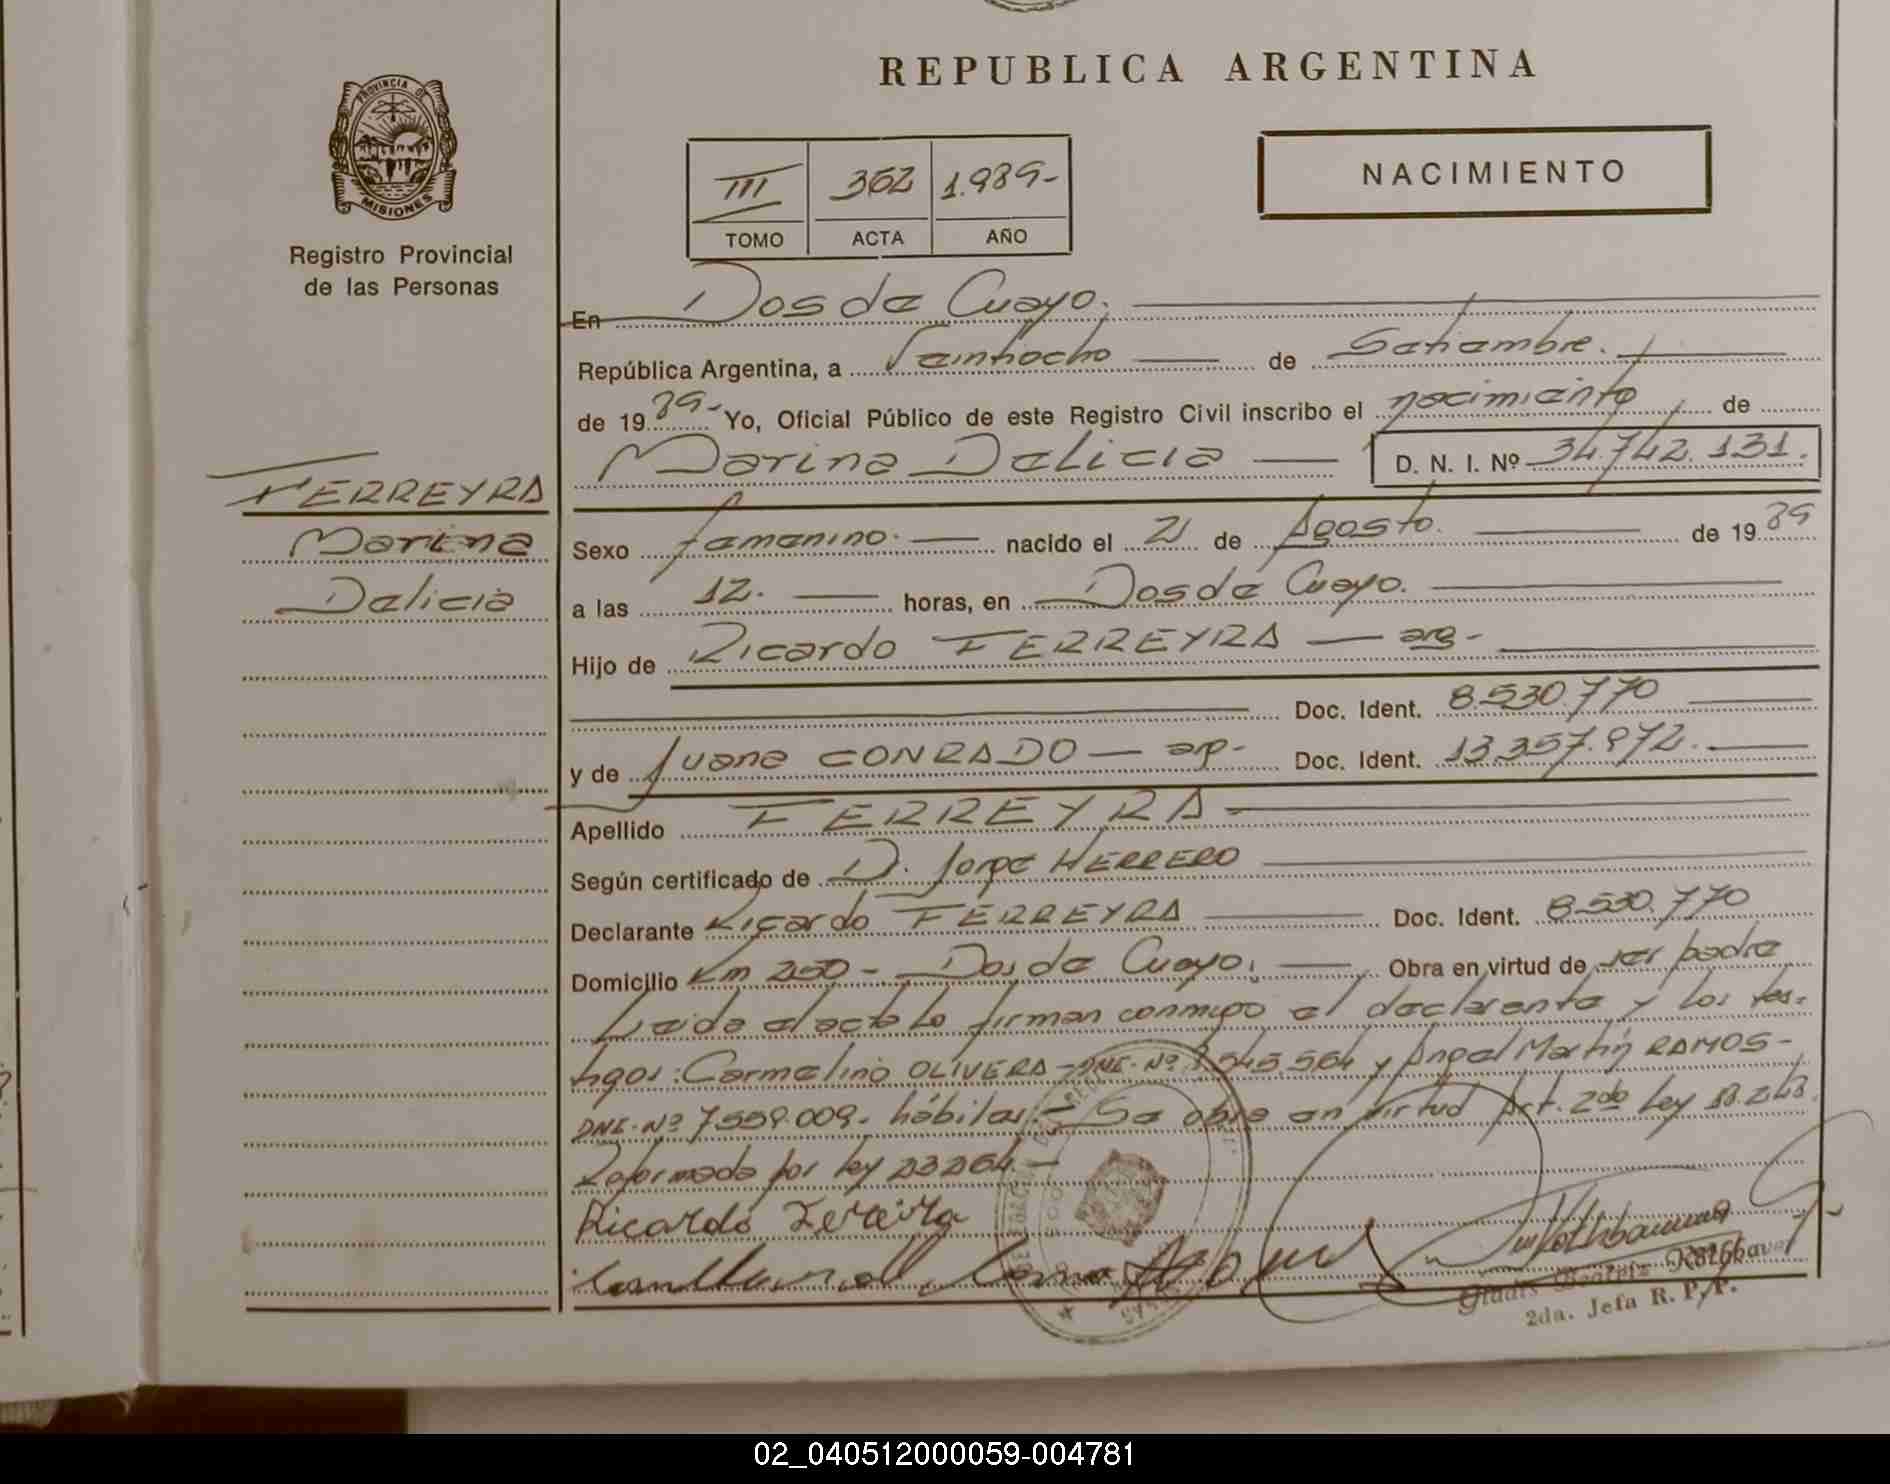 REPUBLICA ARGENTINA
PROVINCIA DE
MISIONES
Registro Provincial
de las Personas
NACIMIENTO
III 362 1.989-
TOMO ACTA AÑO
En Dos de Mayo.
República Argentina, a Veintiocho de Setiembre.
de 19 89- Yo, Oficial Público de este Registro Civil inscribo el nacimiento de
Marina Delicia D. N. I. Nº 34.742.131.
FERREYRA
Marina
Delicia
Sexo femenino. nacido el 21 de Agosto. de 19 89
a las 12. horas, en Dos de Mayo.
Hijo de Ricardo FERREYRA — arg-
Doc. Ident. 8.530.770
y de Juana CONRADO — arg- Doc. Ident. 13.357.972.
Apellido FERREYRA
Según certificado de D. Jorge HERRERO
Declarante Ricardo FERREYRA Doc. Ident. 8.530.770
Domicilio Km 250 - Dos de Mayo. Obra en virtud de ser padre
Leida el acta la firman conmigo el declarante y los tes-
tigos: Carmelino OLIVERA - DNI. Nº 545.564 y Angel Martín RAMOS -
DNI. Nº 7.559.009. hábiles. - Se obra en virtud Art. 2do Ley 18.248.
Reformada por ley 23264. -
Ricardo Fereira
Gladis Beatriz
2da. Jefa R. P. P.
02_040512000059-004781